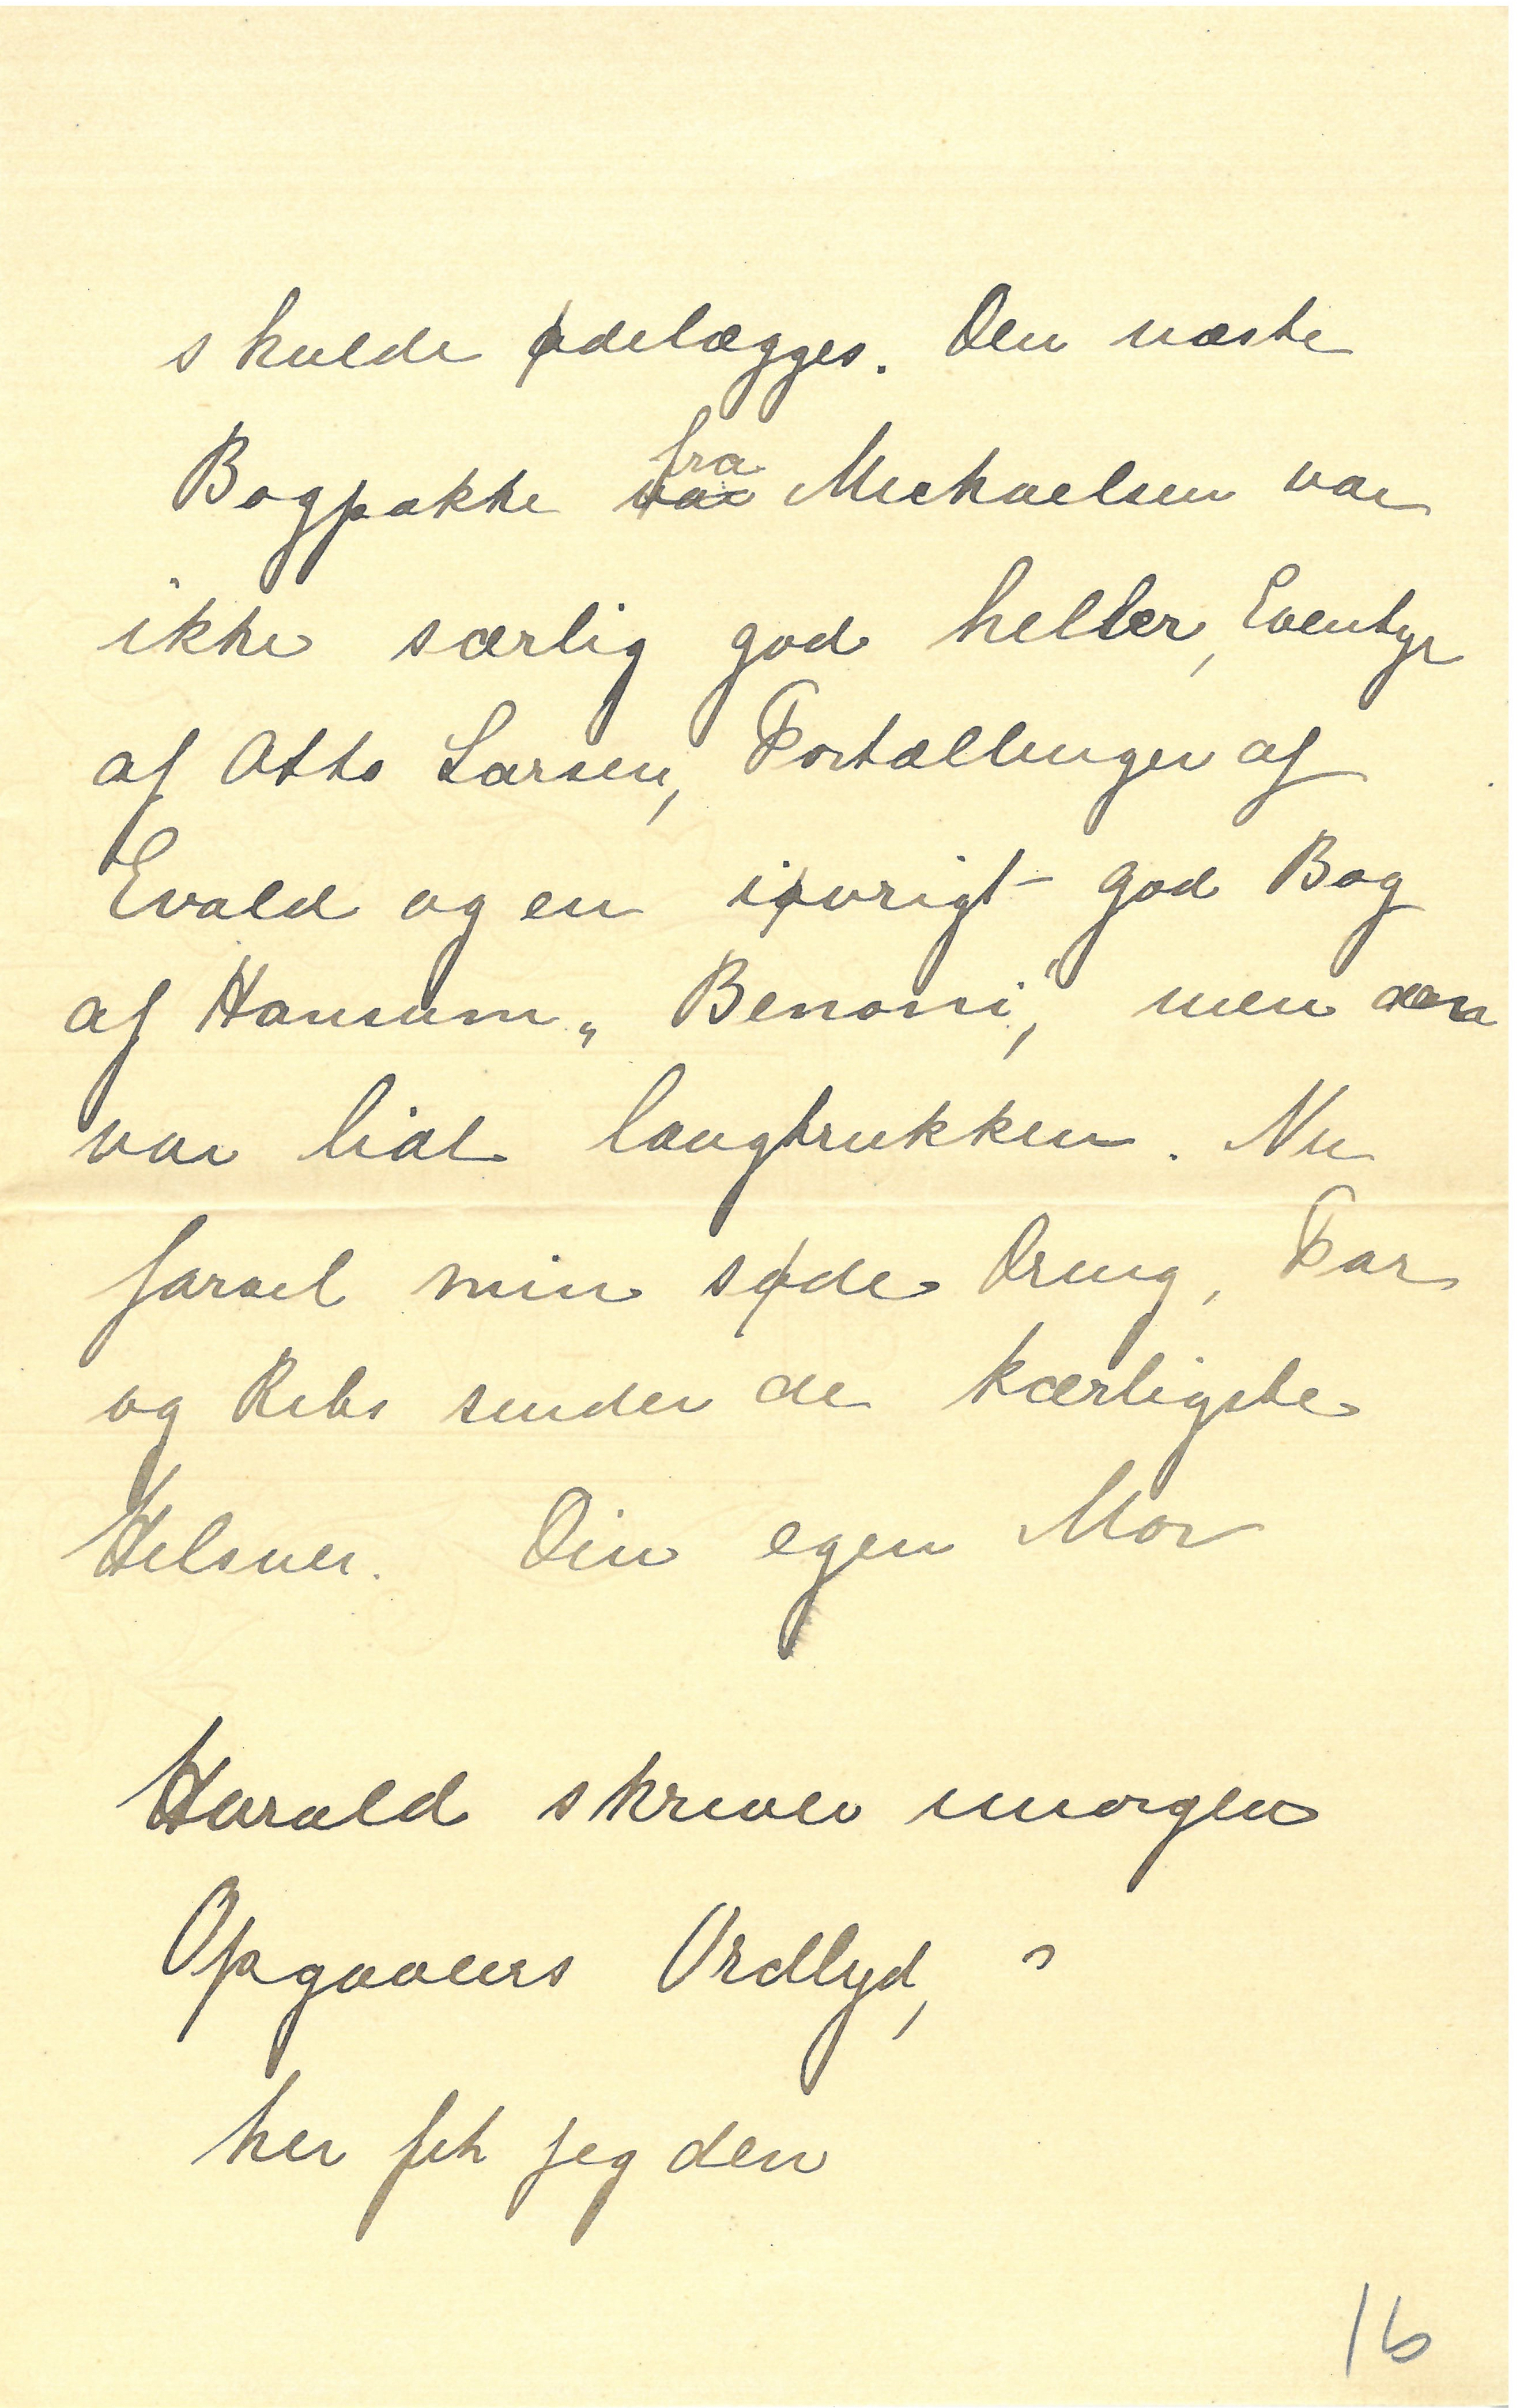 skulde ødelægges. Den næste
Bogpakke fra Michaelsen var
ikke særlig god heller, Eventyr
af Otto Larsen, Fortællinger af
Evald og en iøvrigt god Bog
af Hansum „Benoni", men den
var lidt langtrukken. Nu
farvel min søde Dreng, Far
og Rebs sender de kærligste
Hilsner. Din egen Mor
Harald skriver imorgen
Opgavens Ordlyd,
her fik jeg den
16